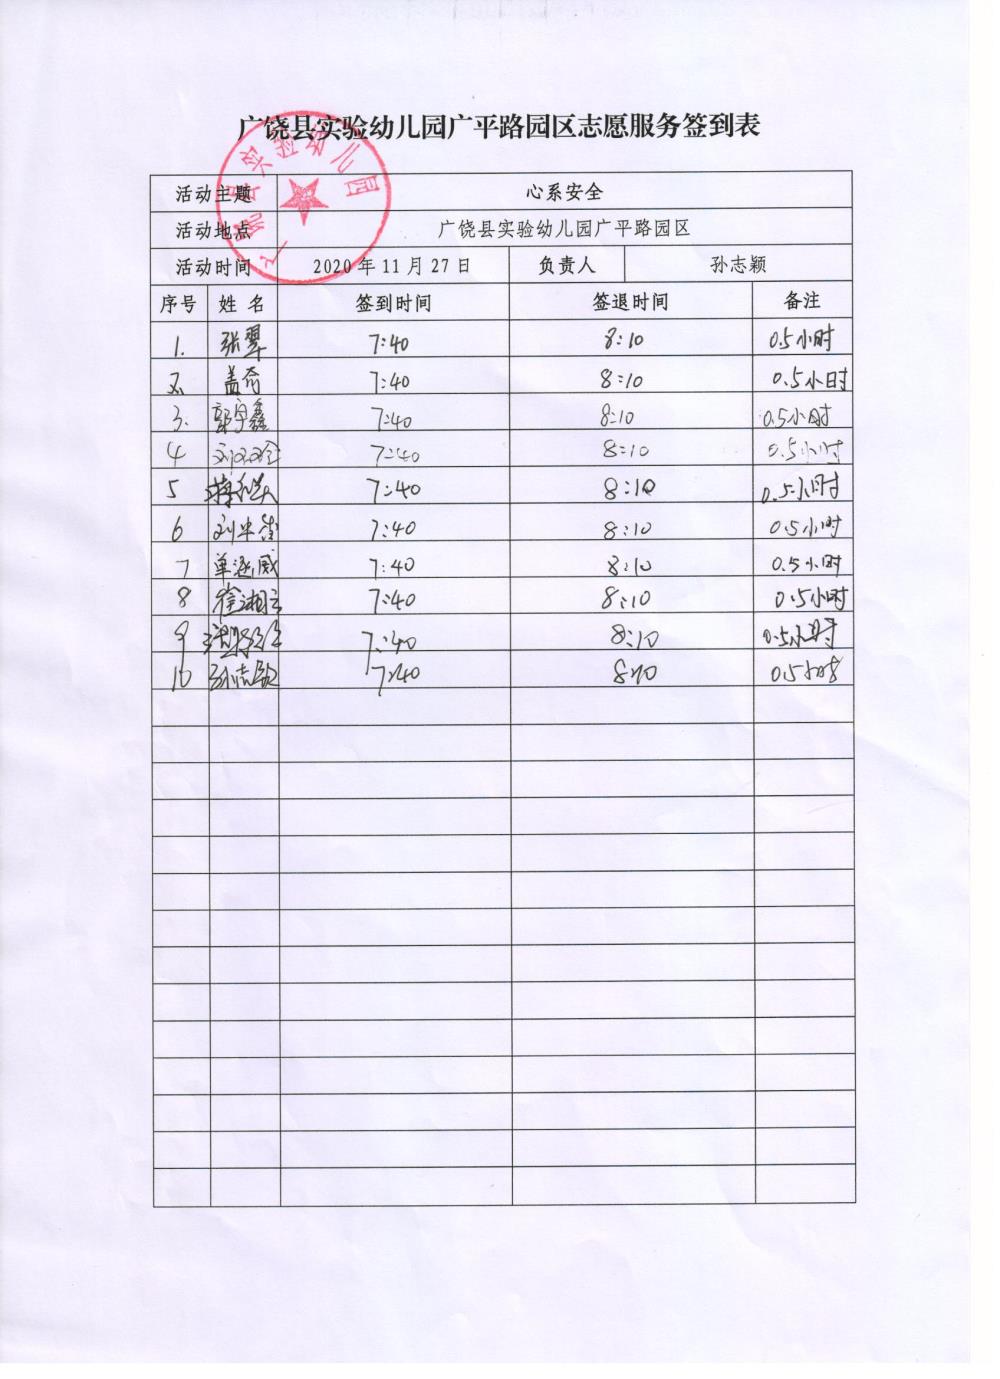 广饶县实验幼儿园广平路园区志愿服务签到表
广饶县实验幼儿园
活动主题 心系安全
活动地点 广饶县实验幼儿园广平路园区
活动时间 2020年11月27日 负责人 孙志颖
序号 姓名 签到时间 签退时间 备注
1. 张翠 7:40 8:10 0.5小时
2. 盖奇 7:40 8:10 0.5小时
3. 郭宇鑫 7:40 8:10 0.5小时
4 7:40 8:10 0.5小时
5 7:40 8:10 0.5小时
6 7:40 8:10 0.5小时
7 单逊威 7:40 8:10 0.5小时
8 徐湘云 7:40 8:10 0.5小时
9 7:40 8:10 0.5小时
10 7:40 8:10 0.5小时